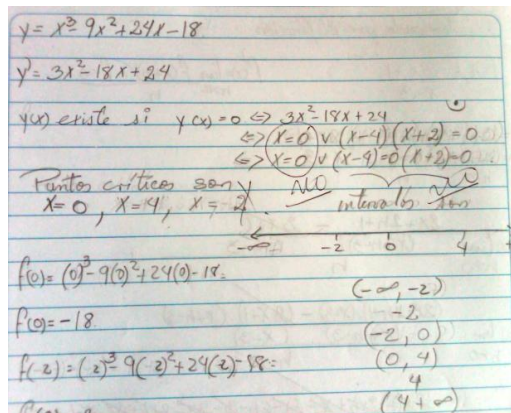 y = x³- 9x²+24x-18
y' = 3x²-18x+24
y'(x) existe si y'(x) = 0 ⇔ 3x²-18x+24
⇔ x=0 ∨ (x-4)(x+2) = 0
⇔ x=0 ∨ (x-4)=0 (x+2)=0
Puntos críticos son NO NO
x= 0, x=4, x= -2. intervalos son
-∞ -2 0 4
f(0)= (0)³-9(0)²+24(0)-18=
(-∞, -2)
f(0)= -18.
-2
(-2, 0)
f(-2) = (-2)³-9(-2)²+24(2)-18=
(0, 4)
4
(4 +∞)